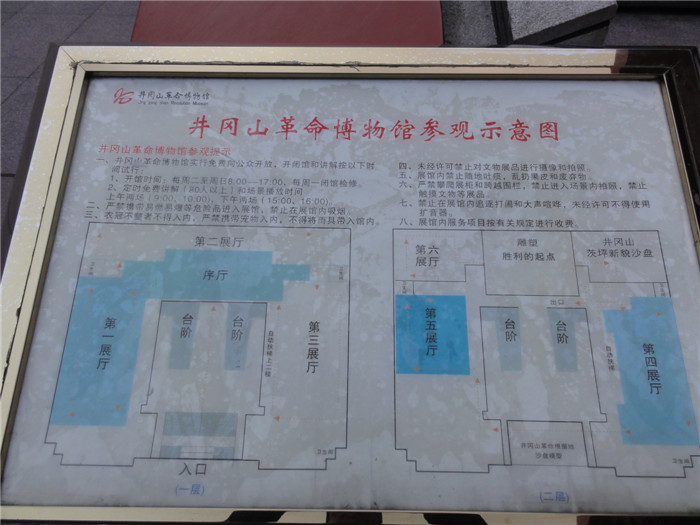 井冈山革命博物馆
井冈山革命博物馆参观示意图
井冈山革命博物馆参观提示
一、井冈山革命博物馆实行免费向公众开放，开闭馆和讲解按以下时
间试行。
1、开馆时间：每周二至周日8:00—17:00，每周一闭馆检修。
2、定时免费讲解（80人以上）和场景播放时间
上午两场（9:00、10:00），下午两场（15:00、16:00）
二、严禁携带易燃易爆等危险品进入展馆，禁止在展馆内吸烟。
三、衣冠不整者不得入内，严禁携带宠物入内，不得将雨具带入馆内。
四、未经许可禁止对文物展品进行摄像和拍照。
五、展馆内禁止随地吐痰，乱扔果皮和废弃物。
六、严禁攀爬展柜和跨越围栏，禁止进入场景内拍照，禁止
触摸文物等展品。
七、禁止在展馆内追逐打闹和大声喧哗，未经许可不得使用
扩音器。
八、展馆内服务项目按有关规定进行收费。
第二展厅
序厅
第一展厅
台阶
台阶
自动扶梯上二楼
第三展厅
卫生间
入口
(一层)
第六展厅
雕塑
胜利的起点
井冈山
茨坪新貌沙盘
出口
第五展厅
台阶
台阶
自动扶梯
第四展厅
井冈山革命根据地
沙盘模型
卫生间
(二层)